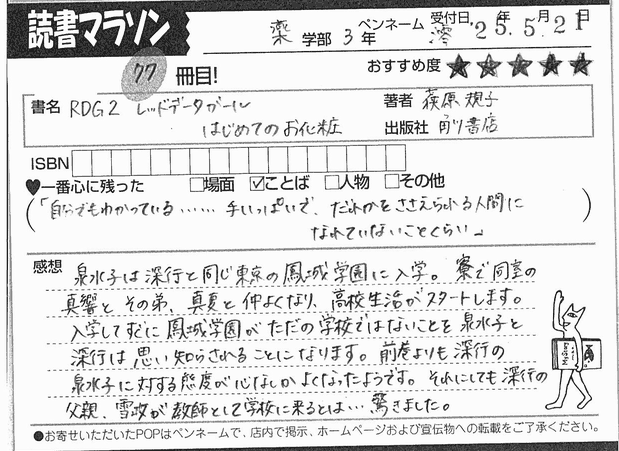 読書マラソン
薬 学部 3 年 ペンネーム 澪 受付日 '25年 5月 21日
77 冊目!
おすすめ度 ★★★★★
書名 RDG2 レッドデータガール 著者 荻原規子
はじめてのお化粧 出版社 角川書店
ISBN
♥一番心に残った □場面 ☑ことば □人物 □その他
(「自分でもわかっている……手いっぱいで、だれかをささえられる人間に
なれていないことくらい」)
感想 泉水子は深行と同じ東京の鳳城学園に入学。寮で同室の
真響と その弟、真夏と仲よくなり、高校生活がスタートします。
入学してすぐに鳳城学園がただの学校ではないことを泉水子と
深行は思い知らされることになります。前巻よりも深行の
泉水子に対する態度が心なしかよくなったようです。それにしても深行の
父親、雪政が教師として学校に来るとは…驚きました。
●お寄せいただいたPOPはペンネームで、店内で掲示、ホームページおよび宣伝物への転載をご了承ください。